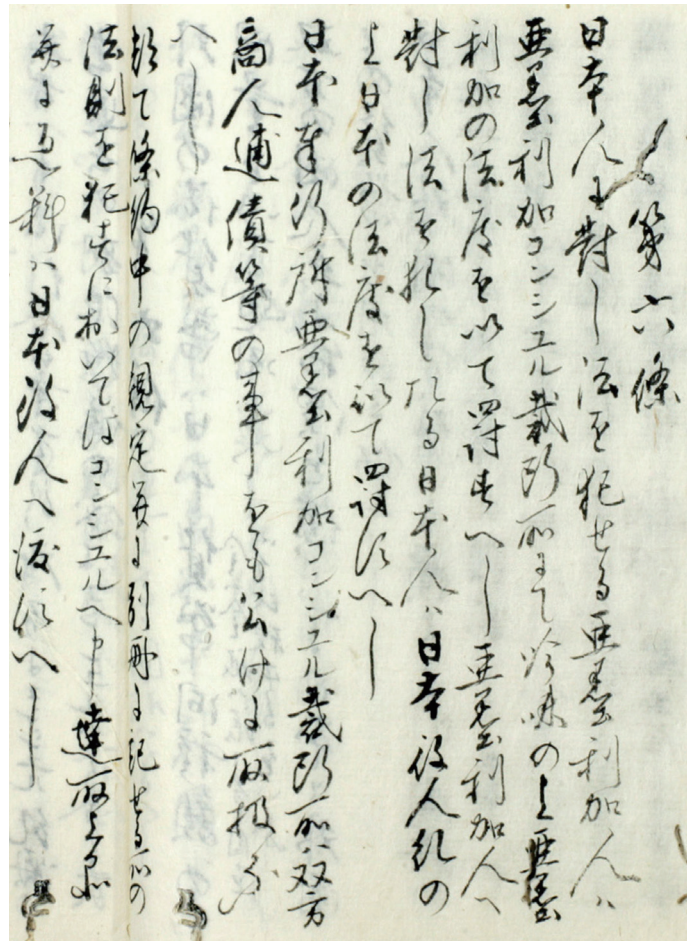 第六條
日本人に對し法を犯せる亜墨利加人ハ
亜墨利加コンシユル裁断所にて吟味の上亜墨
利加の法度を以て罰すへし亜墨利加人へ
對し法を犯したる日本人ハ日本役人糺の
上日本の法度を以て罰すへし
日本奉行所亜墨利加コンシユル裁断所ハ双方
商人逋債等の事をも公けに取扱ふ
へし
都て條約中の規定并に別册に記せる所の
法則を犯すにおいてはコンシユルへ申達取上品
并に過料ハ日本役人へ渡すへし